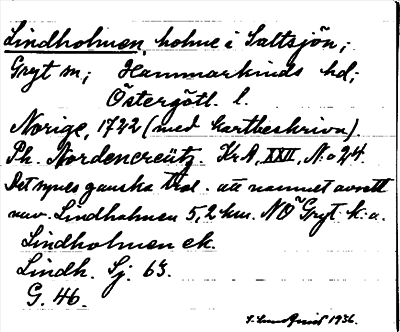 Lindholmen, holme i Saltsjön;
Gryt sn; Hammarkinds hd;
Östergötl. l.
Norige, 1722 (med kartbeskrivn).
Ph. Nordencreütz. KrA, XXII, No 24.
Det synes ganska trol. att namnet avsett
nuv. Lindholmen 5,2 km. NO Gryt k:a.
Lindholmen ek.
Lindh. Sj. 63.
G. 46.
1936.